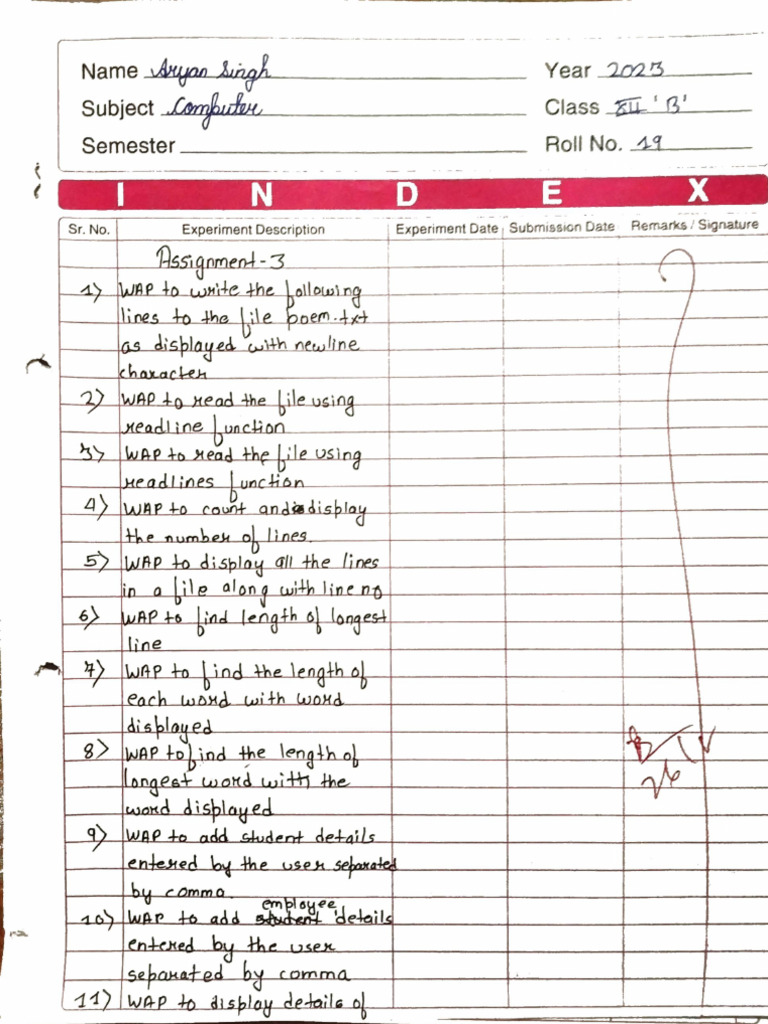 Name Aryan Singh Year 2023
Subject Computer Class XII 'B'
Semester Roll No. 19
I N D E X
Sr. No. Experiment Description Experiment Date Submission Date Remarks / Signature
Assignment-3
1) WAP to write the following
lines to the file poem.txt
as displayed with newline
character
2) WAP to read the file using
readline function
3) WAP to read the file using
readlines function
4) WAP to count and display
the number of lines.
5) WAP to display all the lines
in a file along with line no
6) WAP to find length of longest
line
7) WAP to find the length of
each word with word
displayed
8) WAP to find the length of
longest word with the
word displayed
9) WAP to add student details
entered by the user separated
by comma.
employee
10) WAP to add student details
entered by the user
separated by comma
11) WAP to display details of